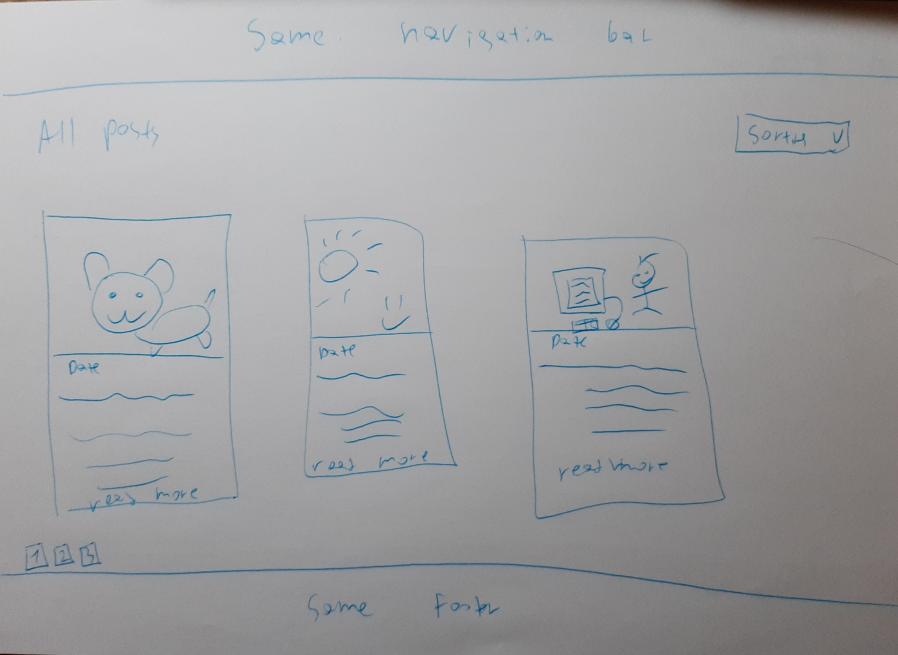 Same navigation bar
All posts
Sortu v
Date
read more
Date
read more
Date
read more
1 2 3
Same Footer